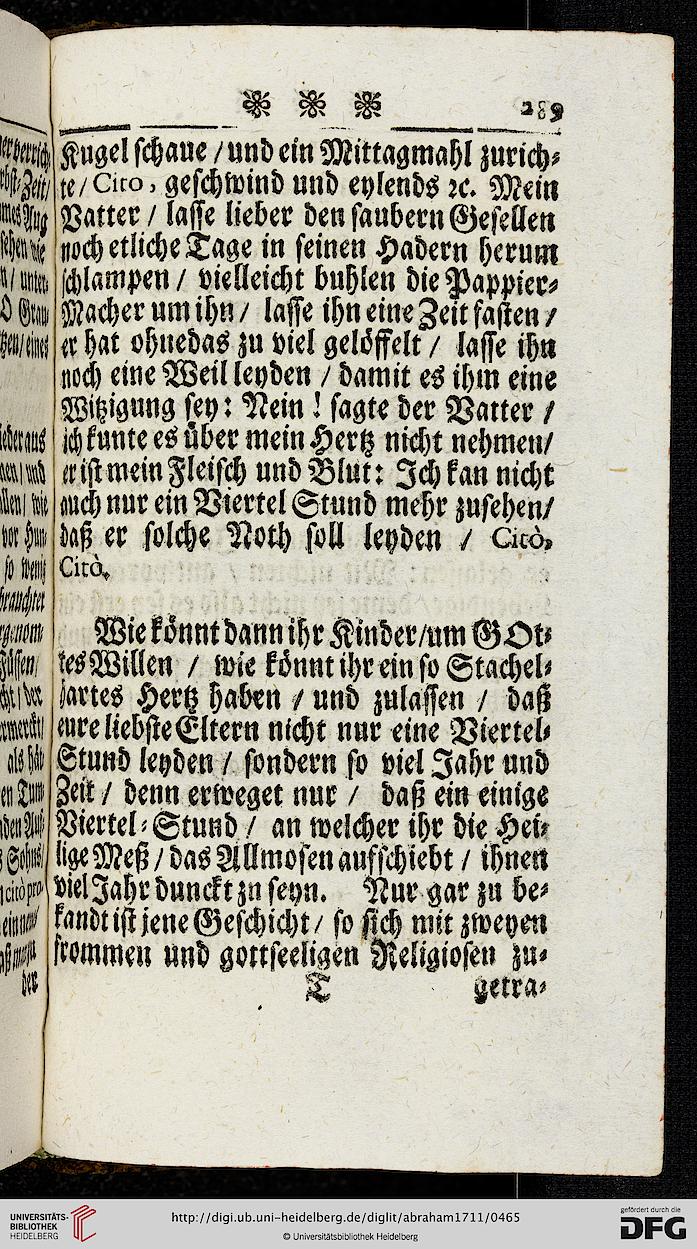 289
Kugel schaue / und ein Mittagmahl zurich-
te / Cito, geschwind und eylends ꝛc. Mein
Vatter / lasse lieber den saubern Gesellen
noch etliche Tage in seinen Hadern herum
schlampen / vielleicht buhlen die Pappier-
Macher um ihn / lasse ihn eine Zeit fasten /
er hat ohnedas zu viel gelöffelt / lasse ihn
noch eine Weil leyden / damit es ihm eine
Witzigung sey: Nein! sagte der Vatter /
ich kunte es über mein Hertz nicht nehmen/
er ist mein Fleisch und Blut: Ich kan nicht
auch nur ein Viertel Stund mehr zusehen/
daß er solche Noth soll leyden / Citò,
Citò.
Wie könnt dann ihr Kinder/um GOt-
tes Willen / wie könnt ihr ein so Stachel-
hartes Hertz haben / und zulassen / daß
eure liebste Eltern nicht nur eine Viertel-
Stund leyden / sondern so viel Jahr und
Zeit / denn erweget nur / daß ein einige
Viertel-Stund / an welcher ihr die Hei-
lige Meß / das Allmosen aufschiebt / ihnen
viel Jahr dunckt zu seyn. Nur gar zu be-
kandt ist jene Geschicht / so sich mit zweyen
frommen und gottseeligen Religiosen zu-
T getra-
UNIVERSITÄTS-
BIBLIOTHEK
HEIDELBERG
http://digi.ub.uni-heidelberg.de/diglit/abraham1711/0465
© Universitätsbibliothek Heidelberg
gefördert durch die
DFG